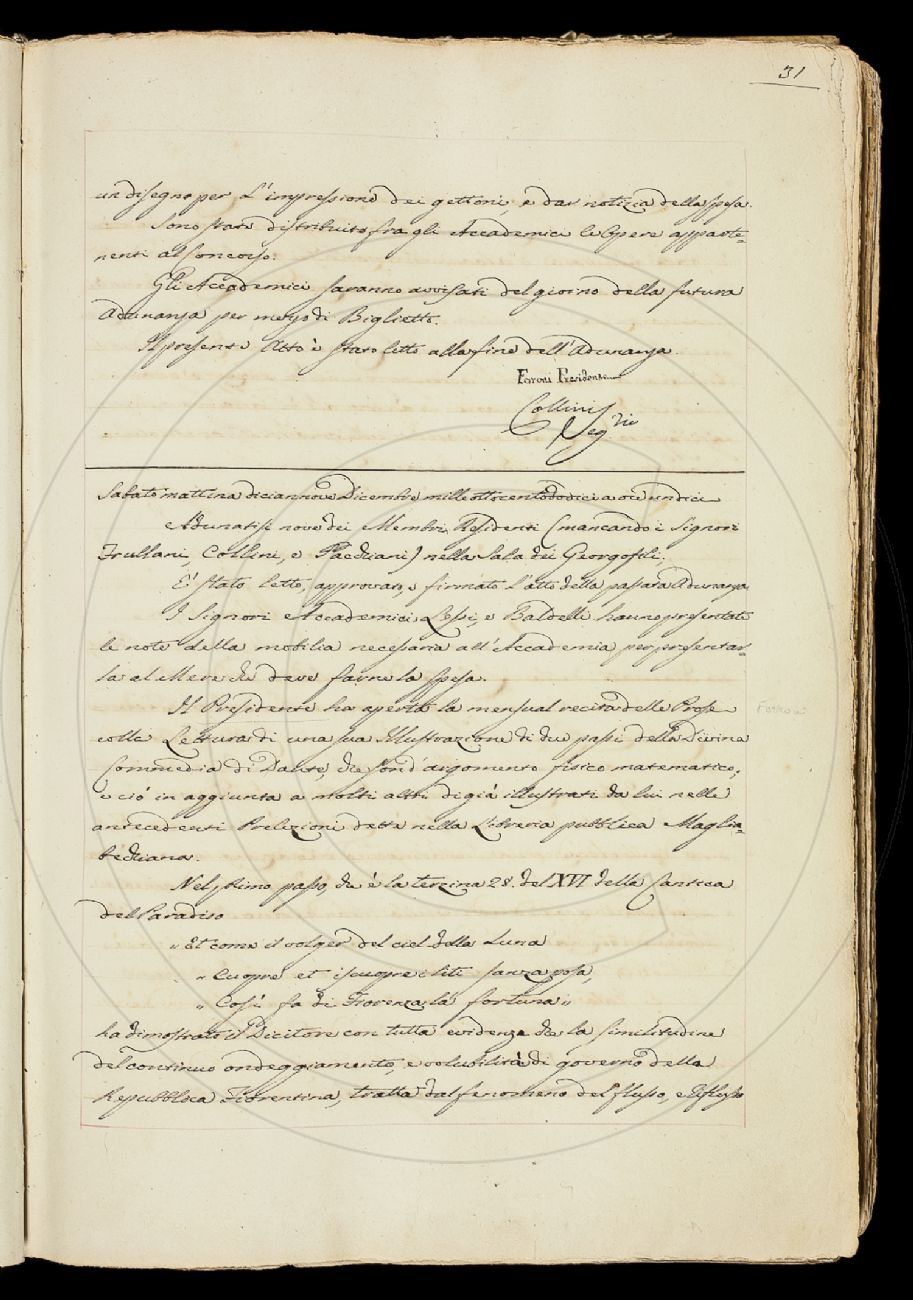 31
un disegno per l'impressione dei gettoni, e dar notizia della spesa.
Sono state distribuite fra gli Accademici le Opere apparte-
nenti al Concorso.
Gli Accademici saranno avvisati del giorno della futura
Adunanza per mezzo di Biglietto.
Il presente Atto è stato letto alla fine dell'Adunanza.
Ferroni Presidente
Collini
Seg.rio
Sabato mattina diciannove Dicembre milleottocentododici a ore undici
Adunatisi nove dei Membri Residenti (mancando i Signori
Frullani, Collini, e Paechiani) nella Sala dei Georgofili;
E' stato letto, approvato, e firmato l'atto della passata Adunanza
I Signori Accademici Lessi, e Baldelli hanno presentate
le note della mobilia necessaria all'Accademia per presentar-
la al Mere che deve farne la spesa.
Il Presidente ha aperta la mensual recita delle Prose
colla Lettura di una sua Illustrazione di due passi della Divina
Commedia di Dante, che son d'argomento fisico matematico;
e ciò in aggiunta a molti altri di già illustrati da lui nelle
antecedenti Prelezioni dette nella Libreria pubblica Maglia-
bechiana.
Ferroni
Nel primo passo, che è la terzina 28. del XVI della Cantica
del Paradiso
" Et come il volger del ciel della Luna
" Cuopre et iscuopre i liti sanza posa,
" Così fa di Fiorenza la fortuna "
ha dimostrato il Dicitore con tutta evidenza che la similitudine
del continuo ondeggiamento, e volubilità di governo della
Repubblica Fiorentina, tratta dal fenomeno del flusso, e Reflusso